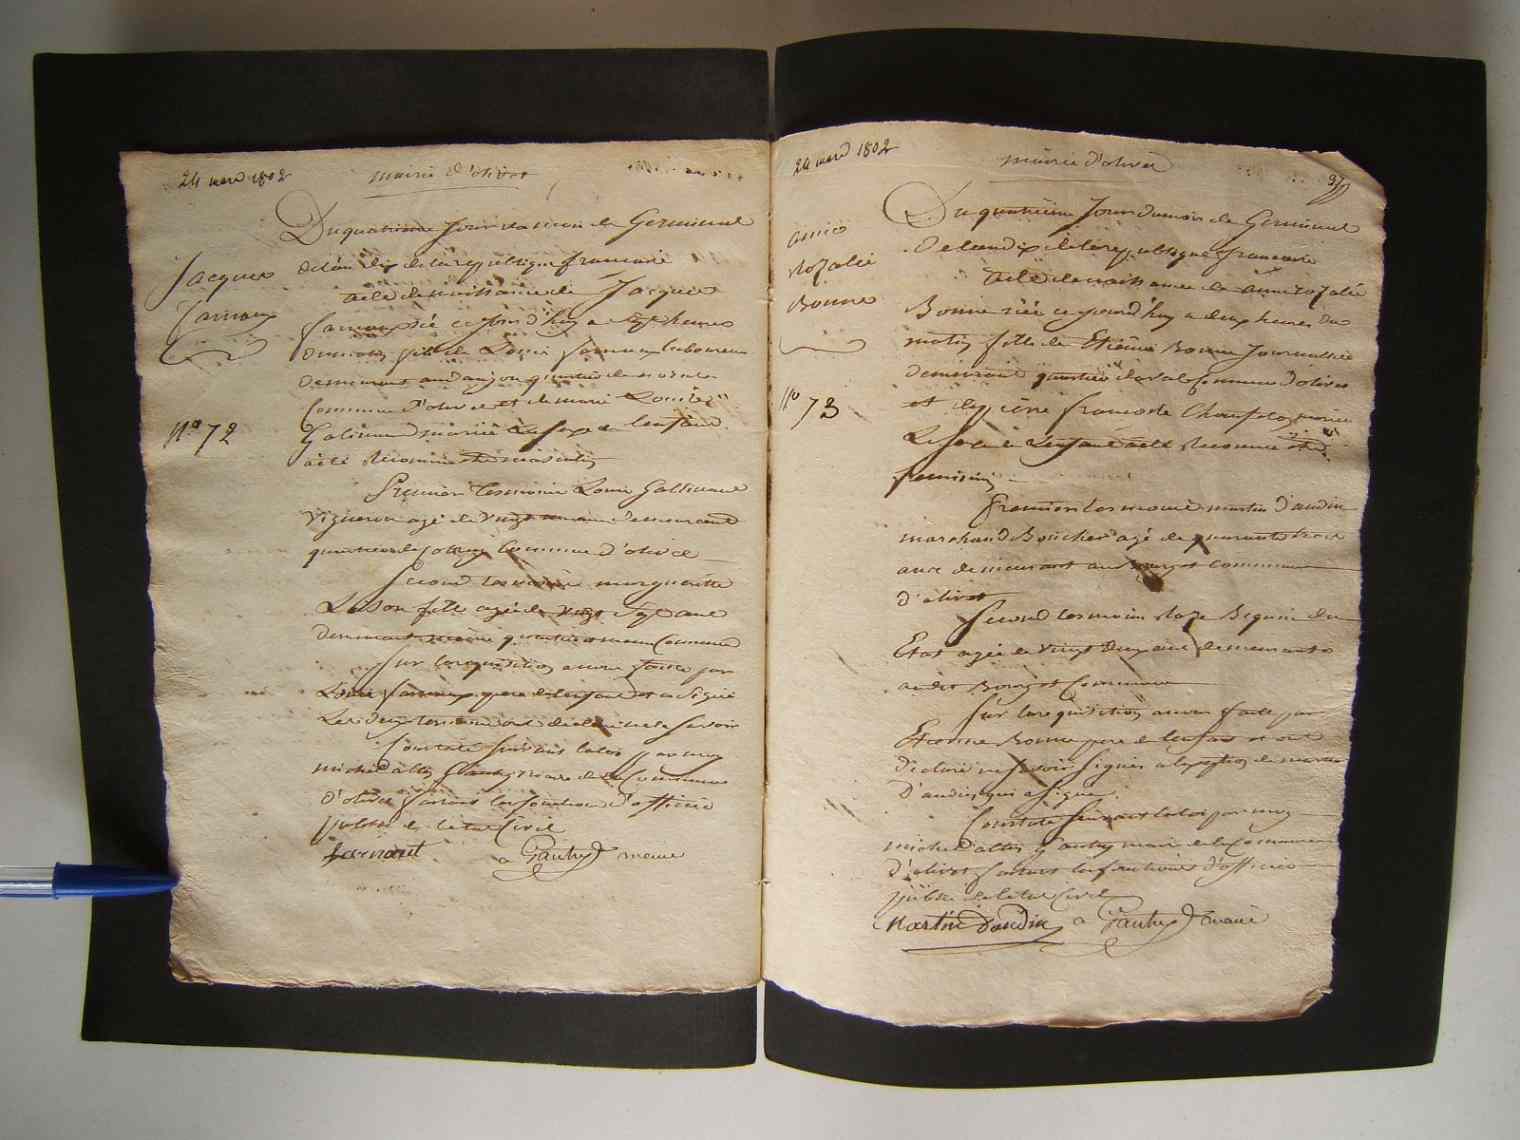 24 mars 1802
mairie d'olivet
Du quatrieme Jour du mois de Germinal
de l'an dix de la republique francaise
Jacques
Farnaux
acte de naissance de Jacques
farnaux née ce jour d'huy a sept heures
du matin fils de Louis farnaux laboureur
demeurant quartier de
Commune d'olivet et de marie Louise
N° 72
Galineau mariée Le sexe de lenfant
a été Reconnu etre masculin
Premier tesmoin Louis Gallineau
vigneron agé de vingt demeurant
quartier de Commune d'olivet
Second tesmoin marguerite
fille agée de vingt sept ans
demeurant meme quartier meme Commune
Sur la requisition a nous faitte par
Louis farnaux pere de lenfant et a Signé
Les deux tesmoin ont declaré ne Savoir
Constaté suivant la loi par moy
michel altin Gautry maire de la Commune
d'olivet faisant les fonctions d'officié
public de letat Civil
farnaut a Gautry maire
24 mars 1802
mairie d'olivet
37
Du quatrieme Jour du mois de Germinal
De l'an dix de la republique francaise
annee
Rozalie
Bonne
acte de naissance de anne rozalie
Bonne née ce jourd'huy a deux heures du
matin fille de Etienne Bonne Journallié
demeurant quartier duval Commune d'olivet
N° 73
et de francoise mariée
Le sexe de Lenfant a été Reconnu etre
feminin
Premier tesmoin martin d'audin
marchand Boucher agé de quarante huit
ans demeurant au bourg et commune
d'olivet
Second tesmoin Roze Bequin du
Etat agée de vingt deux ans demeurante
audit Bourg et Commune
Sur la requisition a nous faite par
Etienne Bonne pere de lenfant et ont
declaré ne savoir signer a lexeption de martin
D'audin qui a signé
Constaté suivant la loi par moy
michel altin gautry maire de la Commune
d'olivet faisant les fonctions d'officié
public de letat Civil
Martin Daudin a Gautry maire